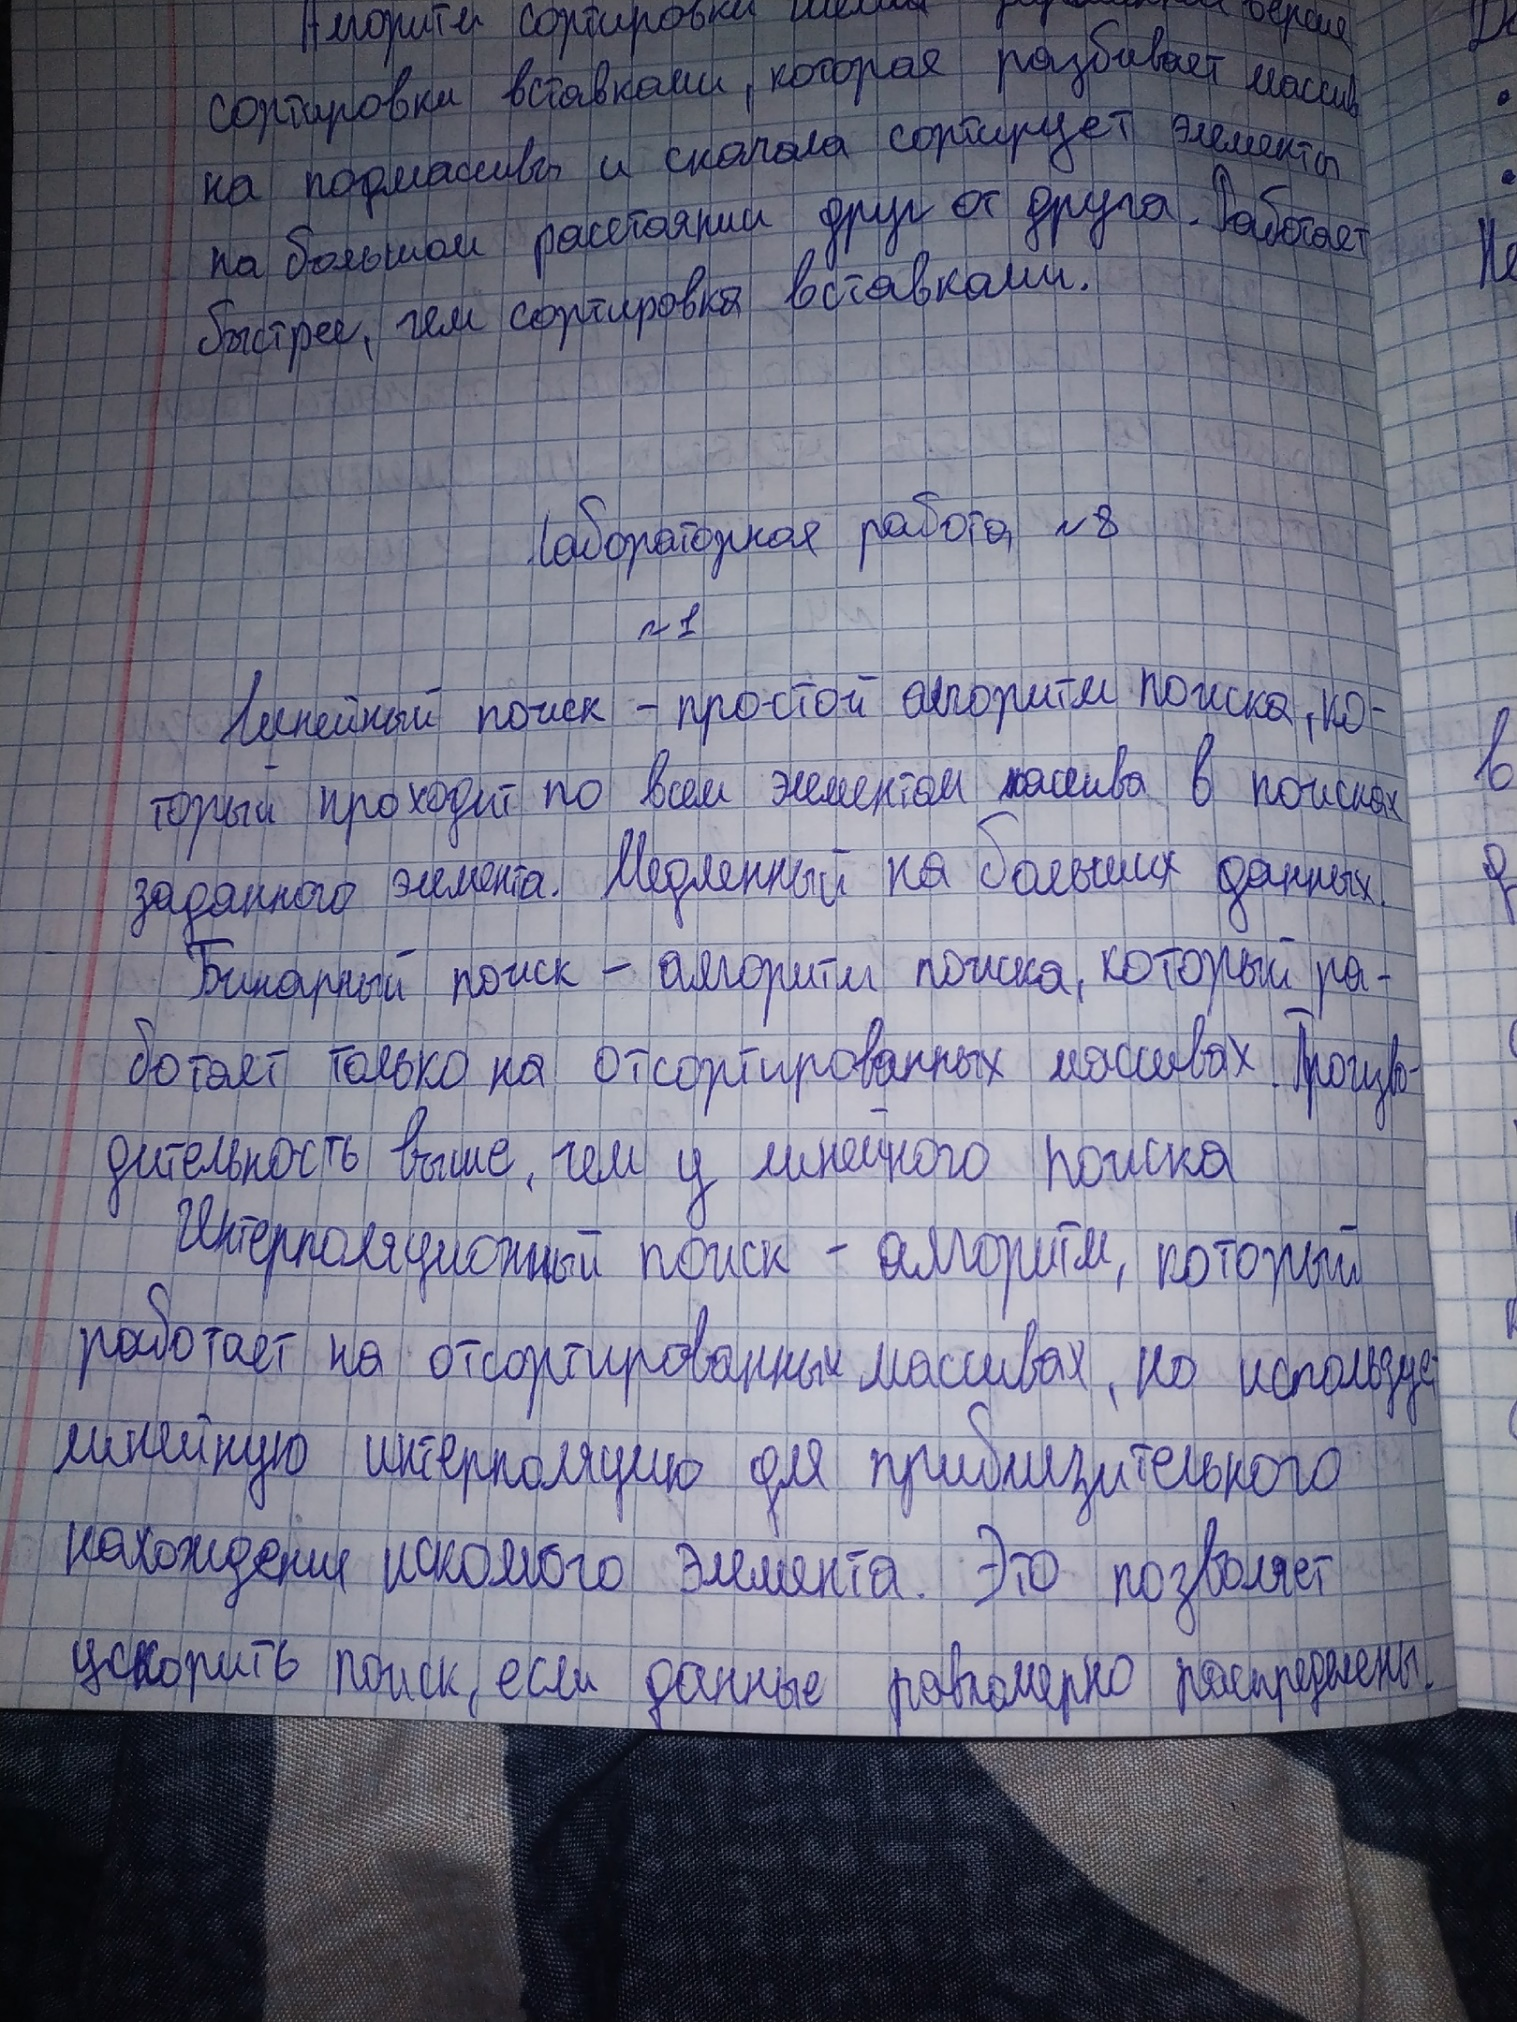 Алгоритм сортировки версия
сортировки вставками, которая разбивает массив
на подмассивы и сначала сортирует элементы
на большом расстоянии друг от друга. Работает
быстрее, чем сортировка вставками.
Лабораторная работа №8
№1
Линейный поиск - простой алгоритм поиска, ко-
торый проходит по всем элементам массива в поисках
заданного элемента. Медленный на больших данных.
Бинарный поиск - алгоритм поиска, который ра-
ботает только на отсортированных массивах. Произво-
дительность выше, чем у линейного поиска
Интерполяционный поиск - алгоритм, который
работает на отсортированных массивах, но использует
линейную интерполяцию для приблизительного
нахождения искомого элемента. Это позволяет
ускорить поиск, если данные равномерно распределены.